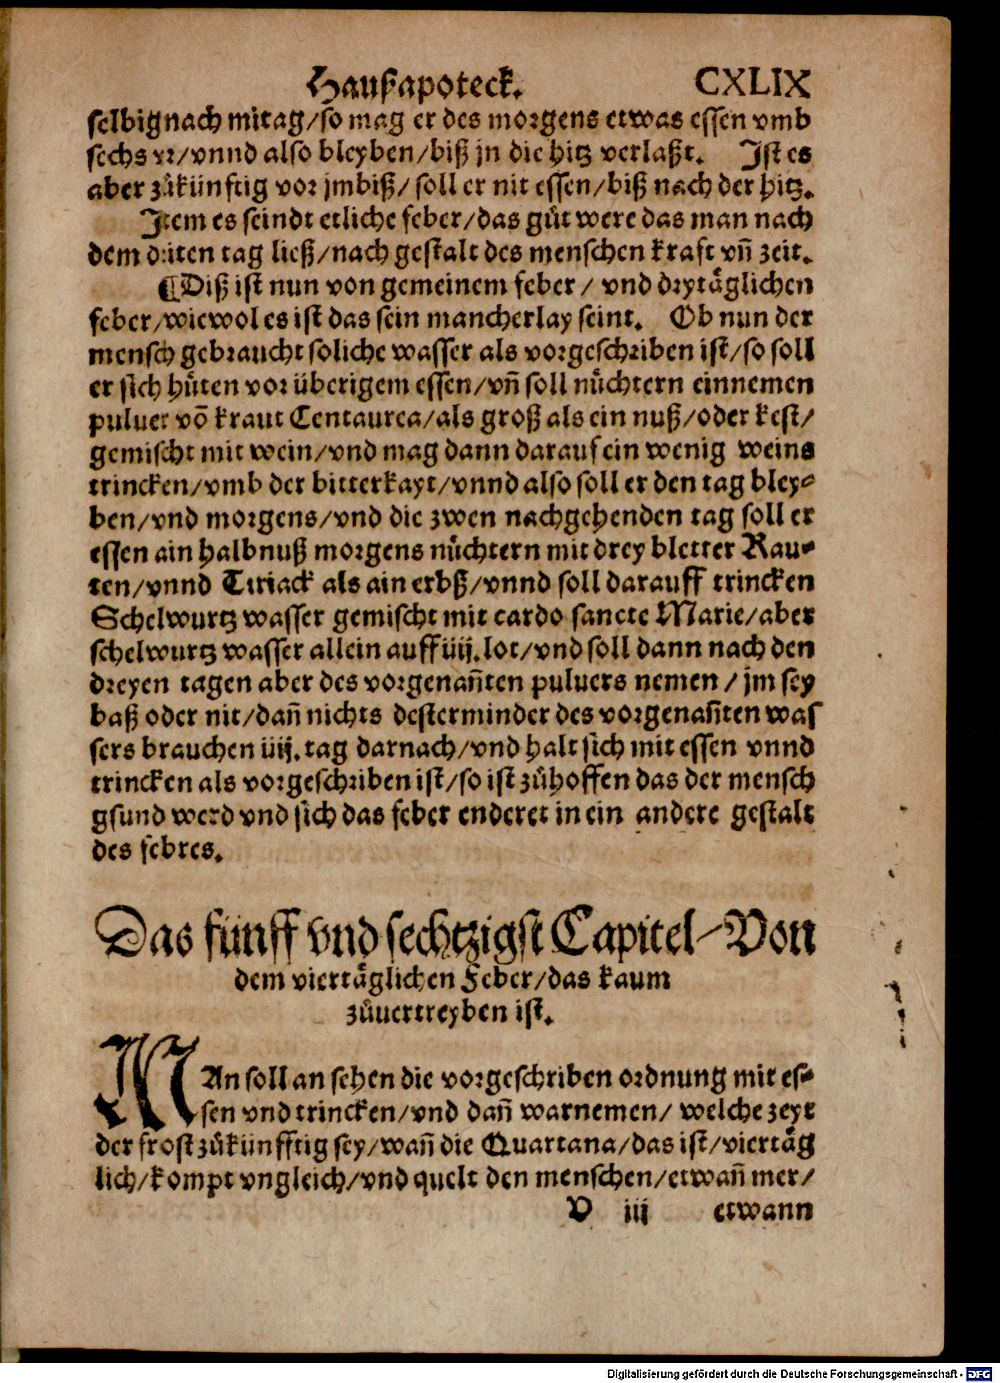 Haußapoteck. CXLIX
selbig nach mitag/so mag er des morgens etwas essen vmb
sechs vr/vnnd also bleyben/biß jn die hitz verlaßt. Ist es
aber zůkünftig vor jmbiß/soll er nit essen/biß nach der hitz.
Item es seindt etliche feber/das gůt were das man nach
dem driten tag ließ/nach gestalt des menschen kraft vñ zeit.
¶Diß ist nun von gemeinem feber/ vnd drytäglichen
feber/wiewol es ist das sein mancherlay seint. Ob nun der
mensch gebraucht soliche wasser als vorgeschriben ist/so soll
er sich hůten vor überigem essen/vñ soll nůchtern einnemen
puluer võ kraut Centaurea/als groß als ein nuß/oder kest/
gemischt mit wein/vnd mag dann darauf ein wenig weins
trincken/vmb der bitterkayt/vnnd also soll er den tag bley⸗
ben/vnd morgens/vnd die zwen nachgehenden tag soll er
essen ain halbnuß morgens nůchtern mit drey bletter Rau⸗
ten/vnnd Tiriack als ain erbß/vnnd soll darauff trincken
Schelwurtz wasser gemischt mit cardo sancte Marie/aber
schelwurtz wasser allein auff iiij. lot/vnd soll dann nach den
dreyen tagen aber des vorgenañten puluers nemen/ jm sey
baß oder nit/dañ nichts desterminder des vorgenañten was
sers brauchen iiij. tag darnach/vnd halt sich mit essen vnnd
trincken als vorgeschriben ist/so ist zůhoffen das der mensch
gsund werd vnd sich das feber enderet in ein andere gestalt
des febres.
Das fünff vnd sechtzigst Capitel/Von
dem viertäglichen Feber/das kaum
zůuertreyben ist.
MAn soll an sehen die vorgeschriben ordnung mit es⸗
sen vnd trincken/vnd dañ warnemen/ welche zeyt
der frost zůkünfftig sey/wañ die Quartana/das ist/viertäg
lich/kompt vngleich/vnd quelt den menschen/etwañ mer/
V iii etwann
Digitalisierung gefördert durch die Deutsche Forschungsgemeinschaft - DFG